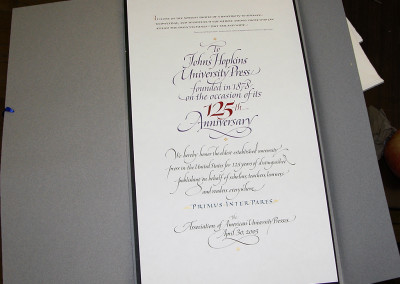 To
Johns Hopkins
University Press
founded in 1878
on the occasion of its
125th
Anniversary
We hereby honor the oldest established university
press in the United States for 125 years of distinguished
publishing on behalf of scholars, teachers, learners
and readers everywhere.
PRIMUS INTER PARES
The
Association of American University Presses
April 30, 2003